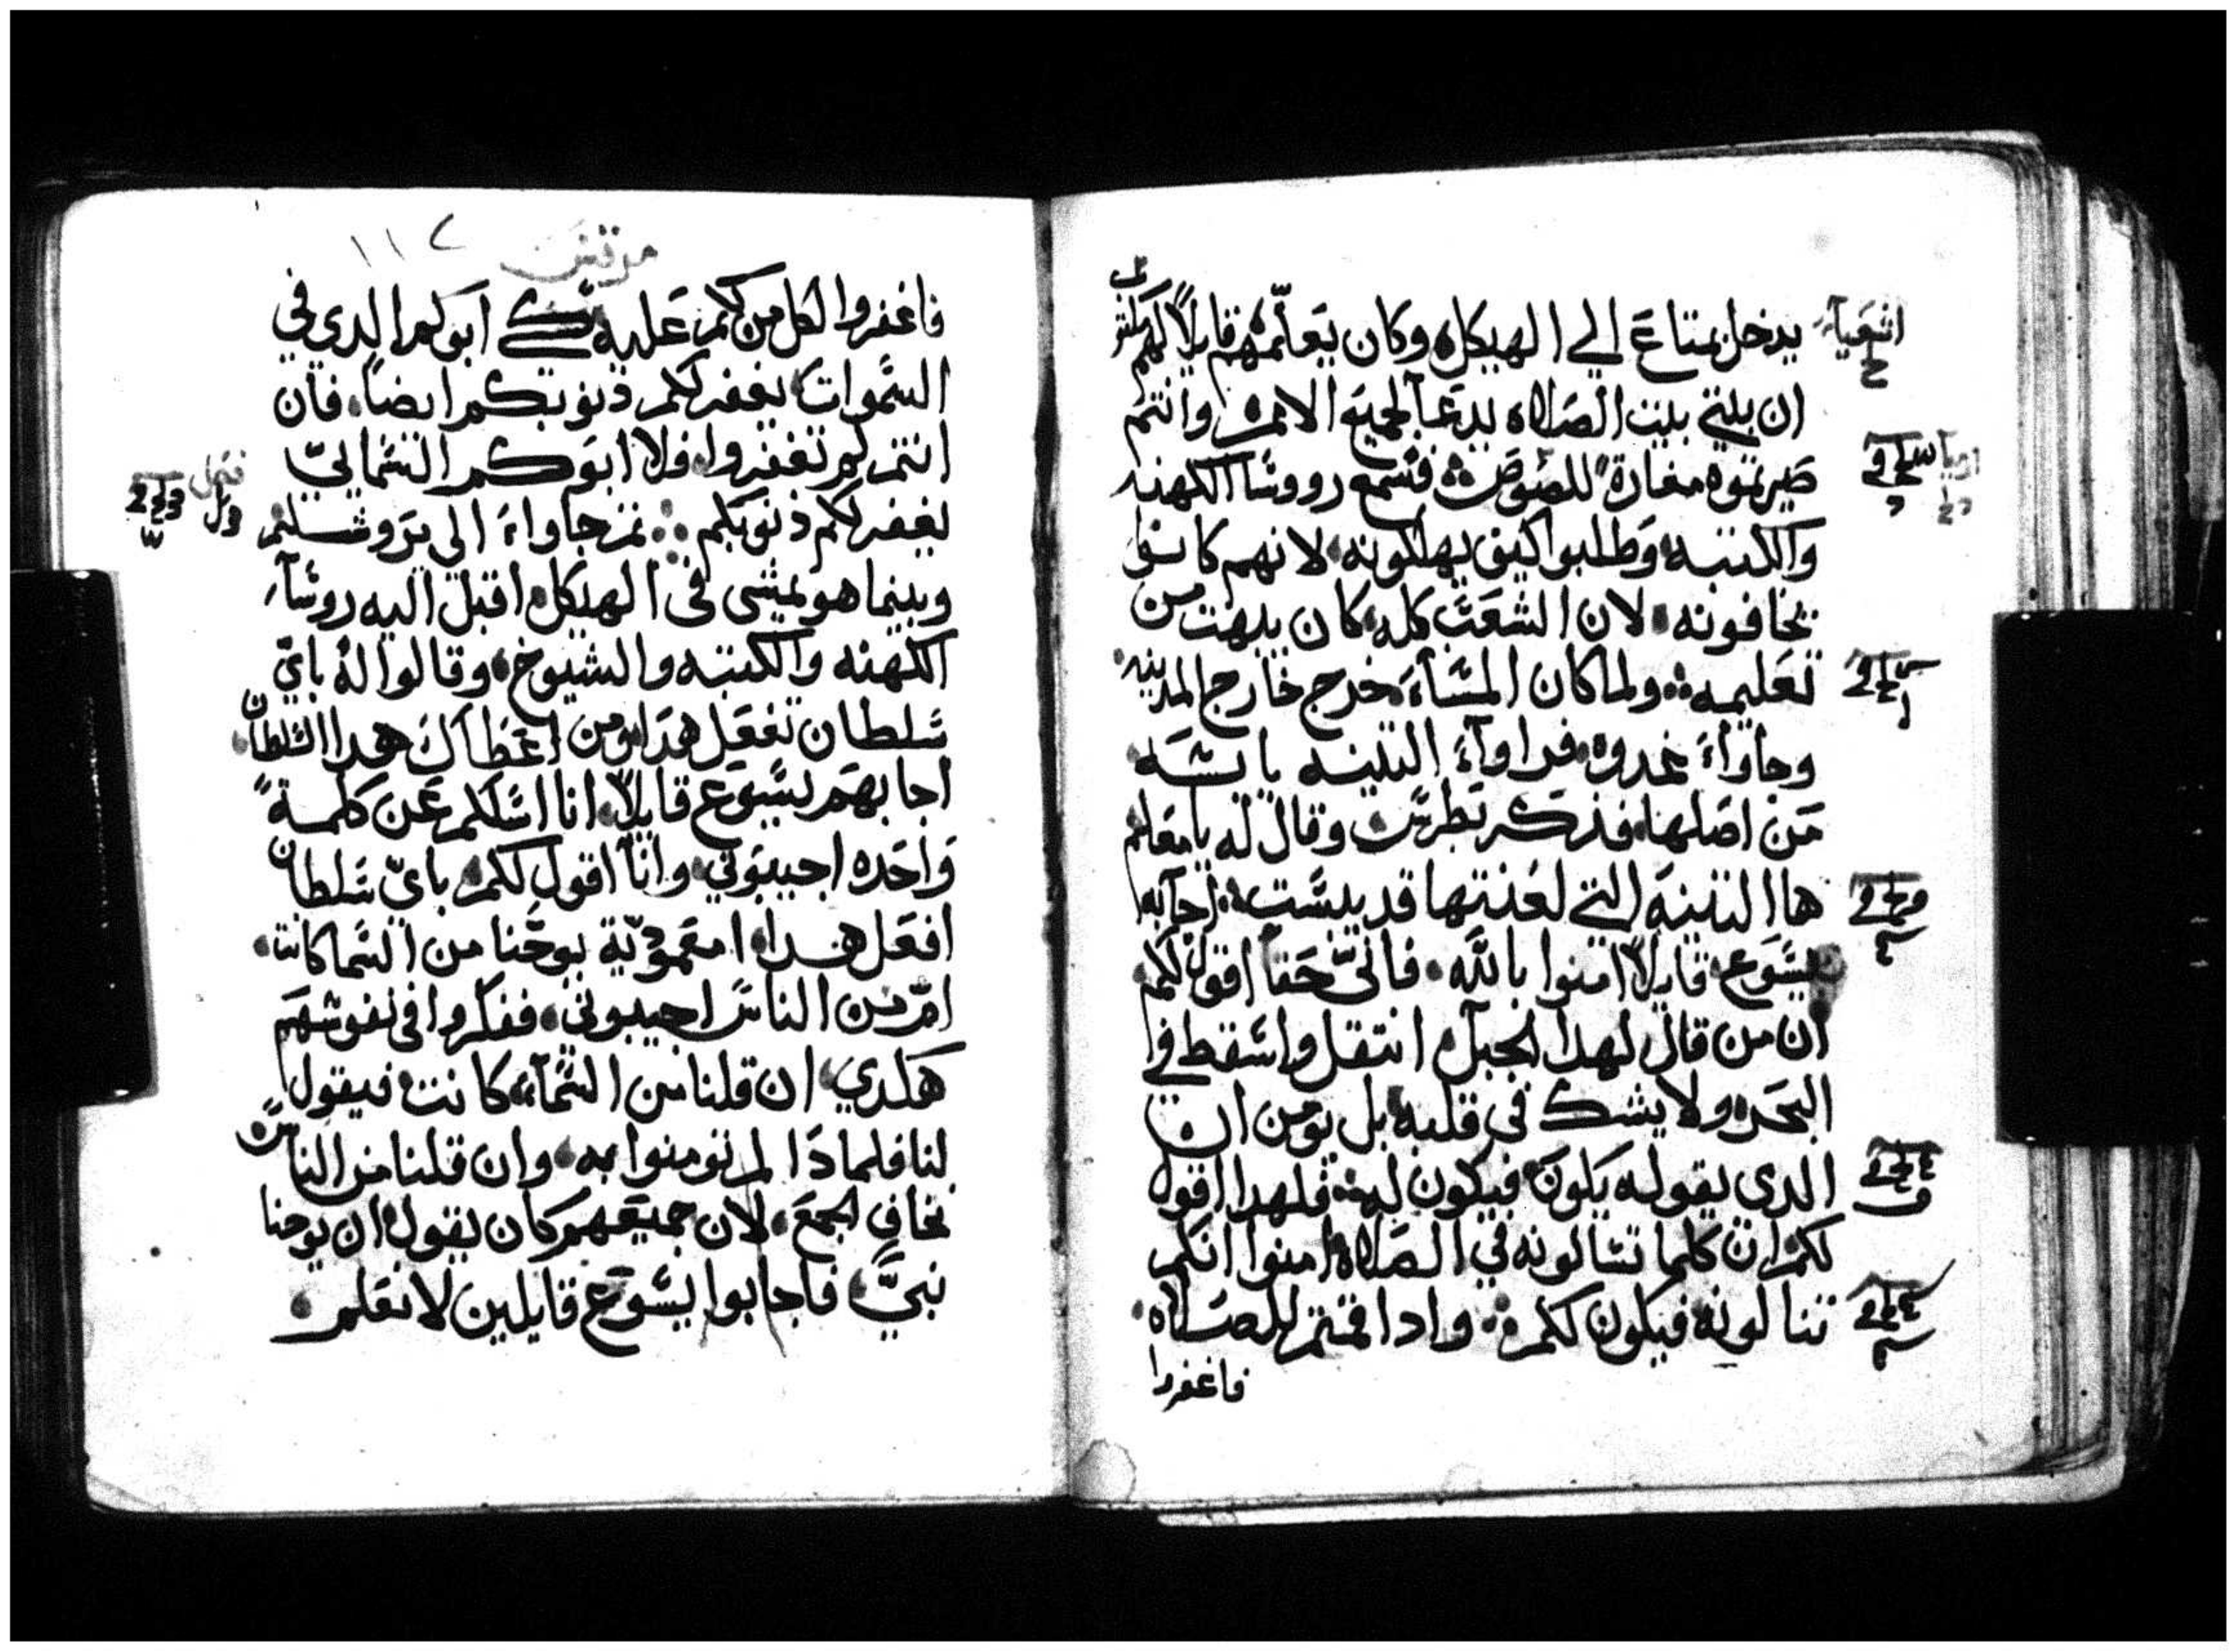 يدخل بمتاع الي الهيكل، وكان يعلّمهم قايلاً لهم مكتوب
ان بيتي بيت الصلاه يدعا لجميع الامم، وانتم
صيرتموه مغارةً للصوص فسمع رووسا الكهنه
والكتبه، وطلبوا كيف يهلكونه، لانهم كانوا
يخافونه، لان الشعب كله، كان يبهت من
تعليمه ولما كان المساء، خرج خارج المدينه
وجاواء غدوه، فراواء التينه يابسه
من اصلها، فذكر بطرس وقال له يا معلم
ها التينة التي لعنتها قد يبست، اجابه
يسوع، قايلاً امنوا بالله، فانيّ حقا اقول لكم
ان من قال لهدا الجبل، انتقل واسقط في
البحر، ولا يشك في قلبه، بل يومن ان
الدي يقوله يكون، فيكون له، فلهدا اقول
لكم، ان كلما تسالونه في الصلاه امنوا انكم
تنالونه فيكون لكم، وادا قمتم للصلاه
فاغفروا
اشعيا
ارميا
مرقس
١١٢
فاغفروا لكل من لكم عليه شي لكي ابوكم الدي في
السموات، يغفر لكم ذنوبكم ايضاً، فان
انتم لم تغفروا، فلا ابوكم السمائيّ
يغفر لكم ذنوبكم ثم جاواء الى يروشليم
وبينما هو يمشى في الهيكل، اقبل اليه روسآء
الكهنه والكتبه والشيوخ، وقالوا له باي
سلطان تفعل هدا، ومن اعطاك هدا السلطان
اجابهم يسوع قايلاً، انا اسالكم عن كلمةً
واحده اجيبوني، وانا اقول لكم، باىّ سلطان
افعل هدا، امعموديّة يوحنا من السما كانت،
امّ من الناس اجيبوني، ففكروا في نفوسهم
هكدي، ان قلنا من السماء، كانت فيقول
لنا فلمادا لم تومنوا به، وان قلنا من الناس
نخاف الجمع، لان جميعهم كان يقول، ان يوحنا
نبيّ، فاجابوا يسوع قايلين لا نعلم،
فصل